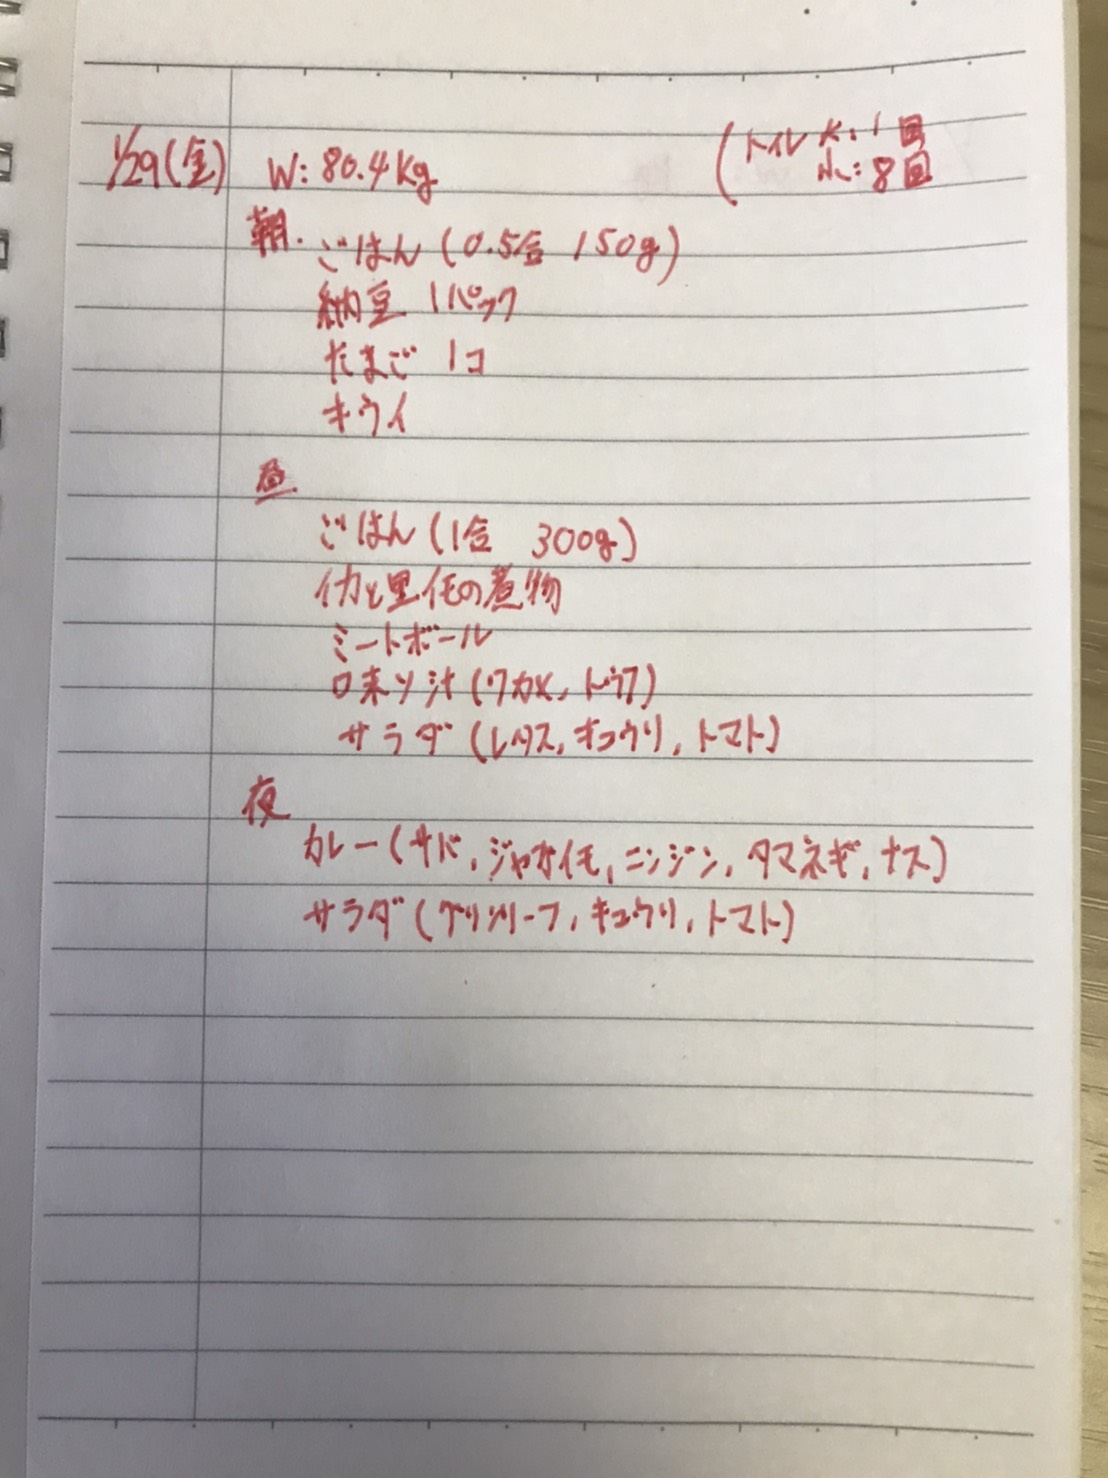 1/29(金) W: 80.4kg (トイレ 大:1回
小:8回
朝. ごはん(0.5合 150g)
納豆 1パック
たまご 1コ
キウイ
昼
ごはん(1合 300g)
イカと里イモの煮物
ミートボール
味ソ汁(ワカメ、トウフ)
サラダ(レタス、キュウリ、トマト)
夜
カレー(サバ、ジャガイモ、ニンジン、タマネギ、ナス)
サラダ(グリンリーフ、キュウリ、トマト)